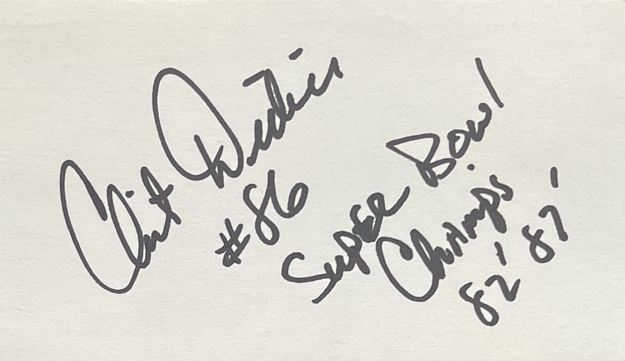 Clint Didier
#86
SUPER BOWl
CHAMPS
82' 87'